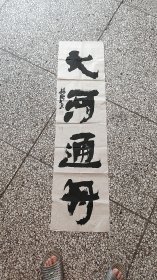 大河通舟